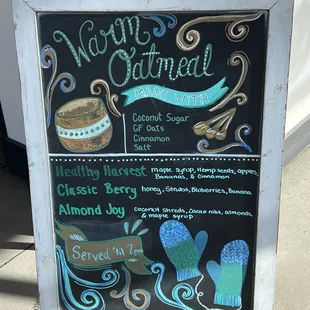 Warm
Oatmeal
MADE WITH
Coconut Sugar
GF Oats
Cinnamon
Salt
Healthy Harvest maple syrup, Hemp seeds, apples,
Bananas, & Cinnamon
Classic Berry honey, Strwbs, Blueberries, Banana
Almond Joy coconut shreds, Cacao nibs, almonds,
& maple syrup
Served 'til 2pm